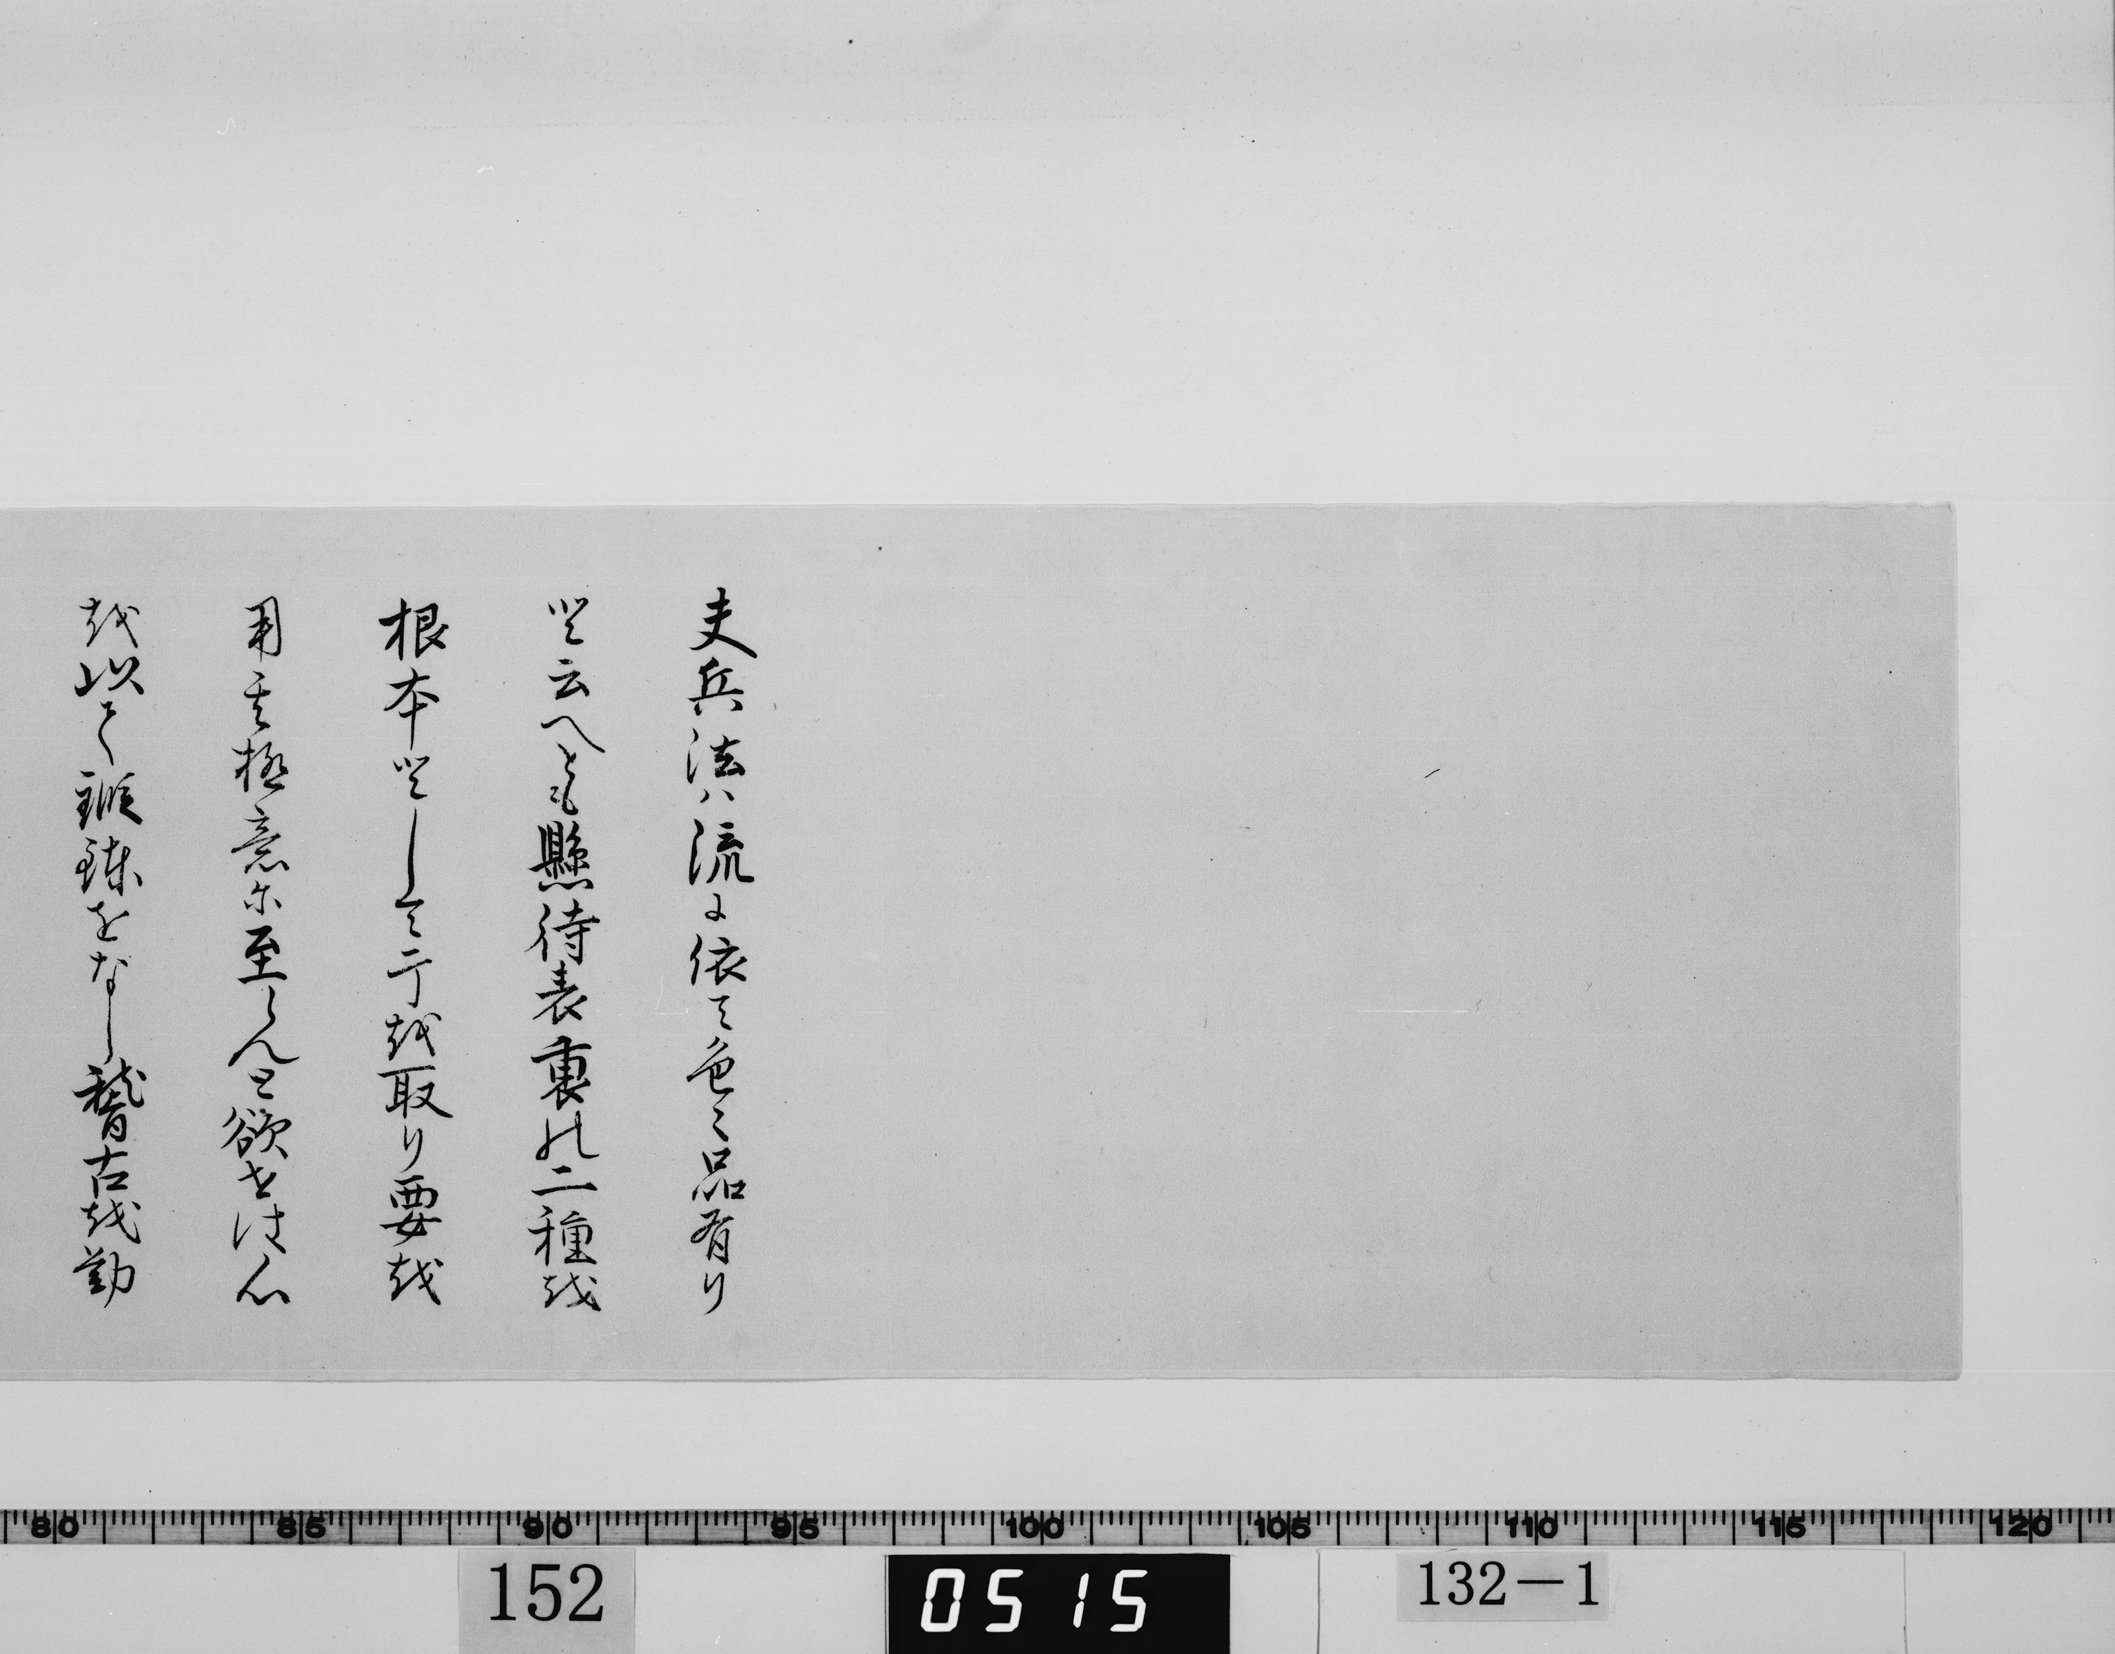 夫兵法ハ流に依て色々品有り
登云へとも懸待表裏の二種越
根本登して亍越取り要越
用て極意尓至らんと欲せは心
越以て鍛錬をなし稽古越勤
80 85 90 95 100 105 110 115 120
152
0515
132－1